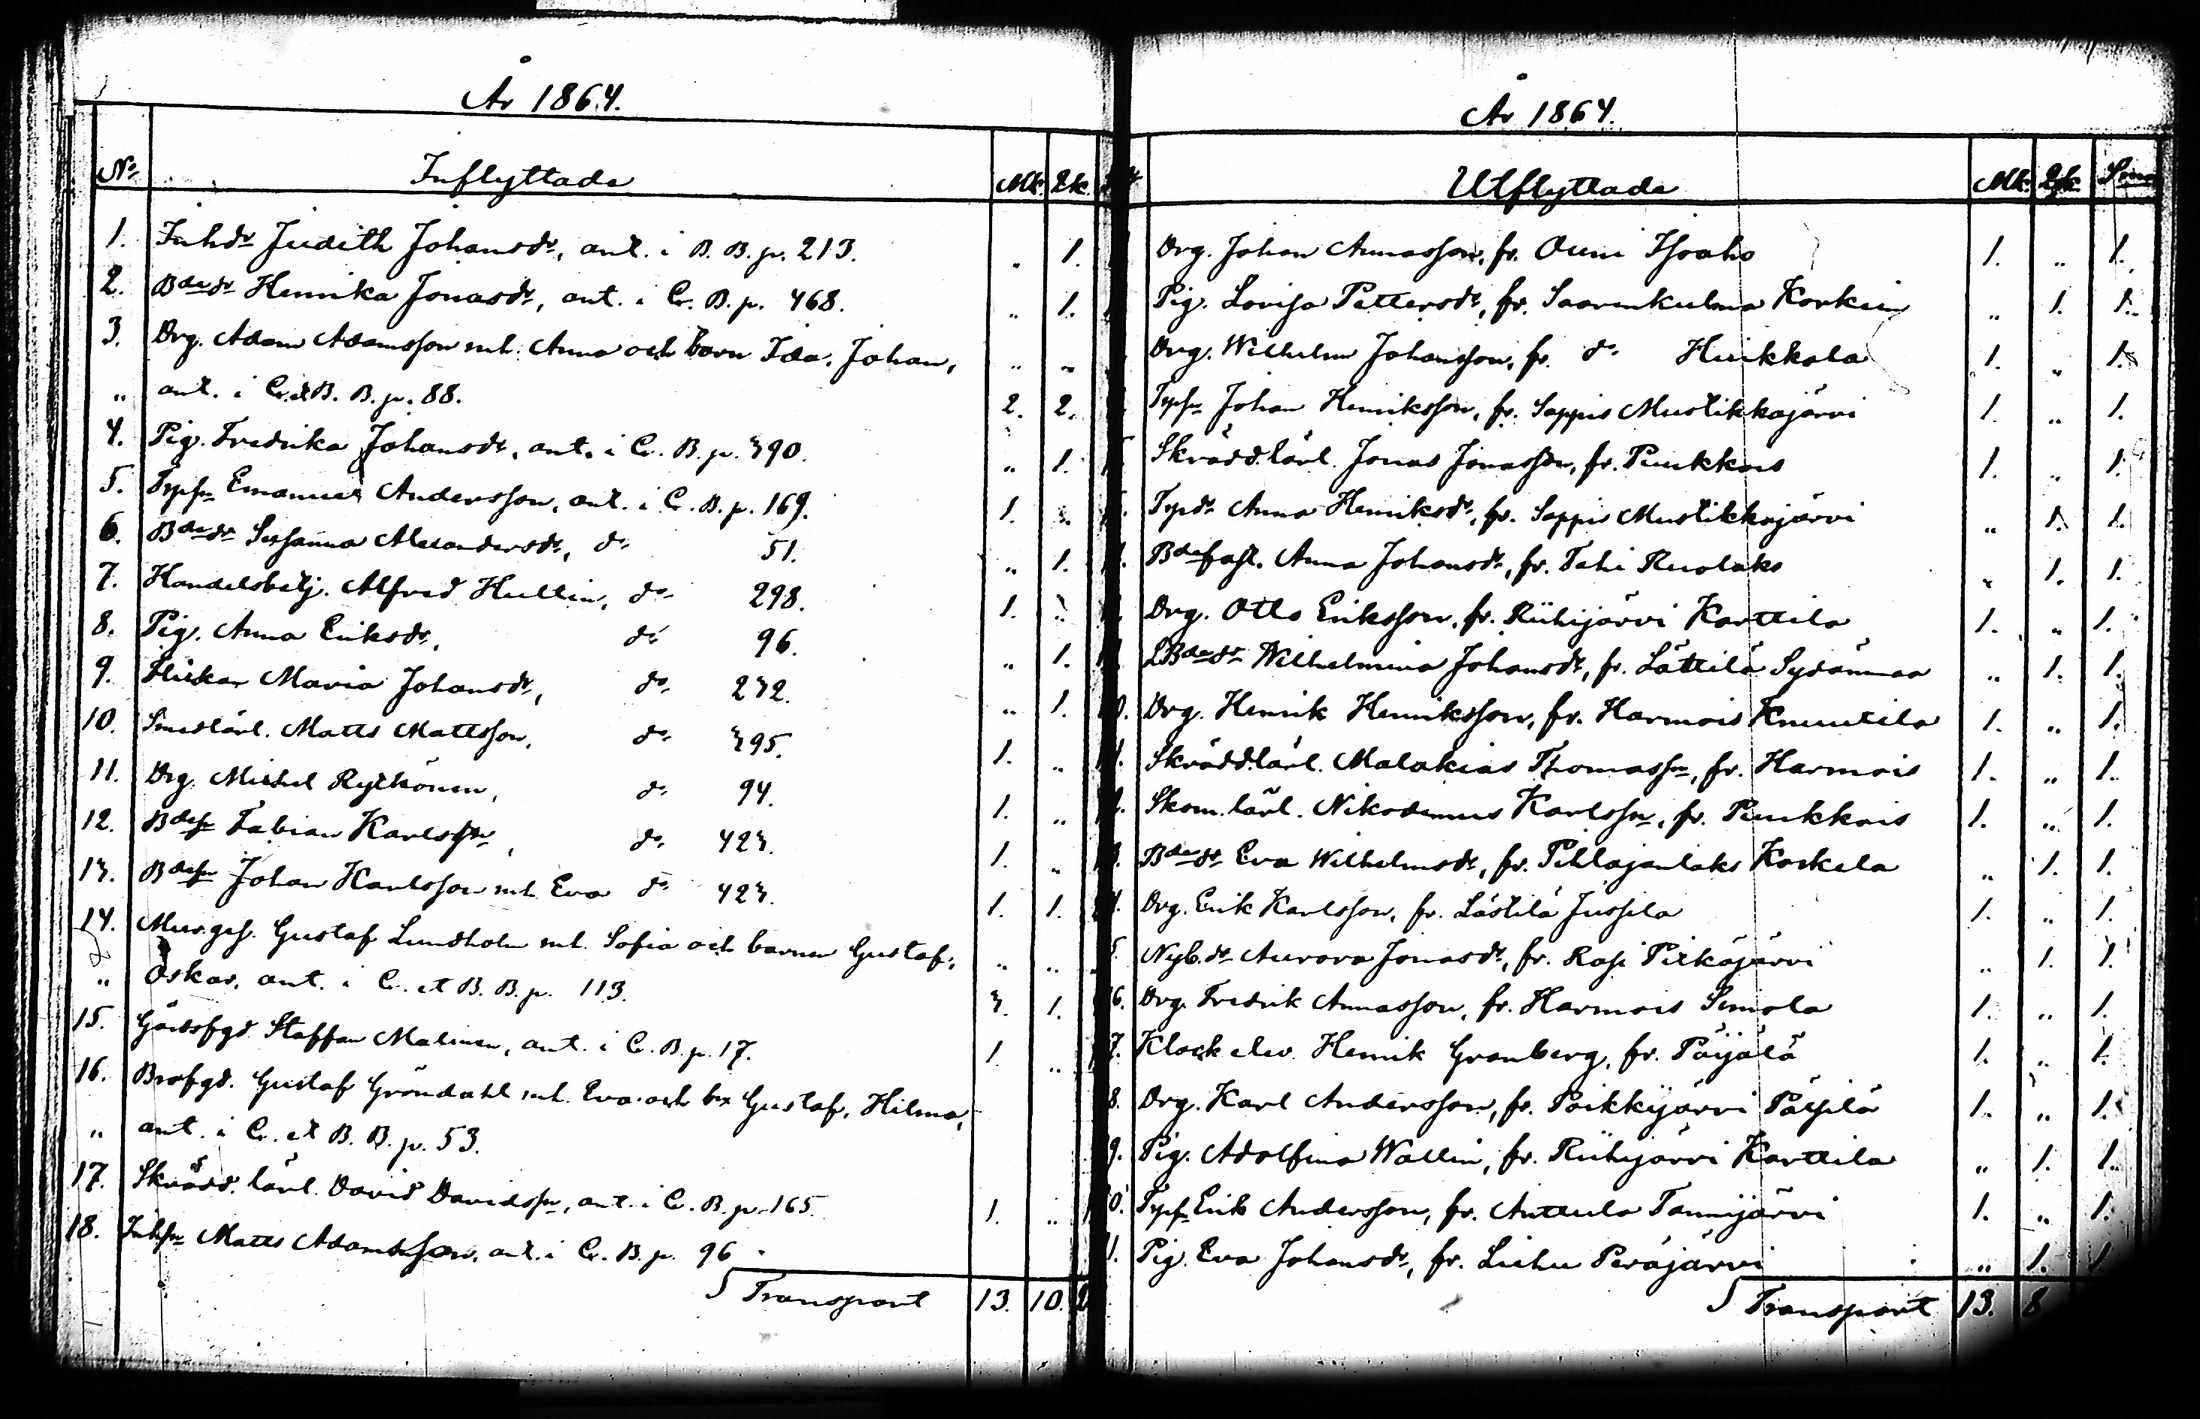 År 1864.
No Inflyttade Mk. Qk.
1. Inhdr Judith Johansdr, ant. i B. B. p. 213. „ 1.
2. Bdedr Henrika Jonasdr, ant. i C. B. p. 468. „ 1.
3. Drg. Adam Adamsson mh. Anna och barn Ida, Johan, „ „
„ ant. i C. et B. B. p. 88. 2. 2.
4. Pig. Fredrika Johansdr, ant. i C. B. p. 390. „ 1.
5. Tpsn Emanuel Andersson, ant. i C. B. p. 169. 1. „
6. Bdedr Susanna Alexandersdr, do 51. „ 1.
7. Handelsbetj. Alfred Hullin, do 298. 1. „
8. Pig. Anna Eriksdr, do 96. „ 1.
9. Flickan Maria Johansdr, do 232. „ 1.
10. Smedlärl. Matts Mattsson, do 395. 1. „
11. Drg. Michel Rytkönen, do 94. 1. „
12. Bdesn Fabian Karlsson, do 423. 1. „
13. Bdesn Johan Karlsson mh. Eva do 423. 1. 1.
14. Mur.ges. Gustaf Lundholm mh. Sofia och barnen Gustaf, „ „
„ Oskar, ant. i C. et B. B. p. 113. 3. 1.
15. Gårdsfgd. Staffan Malinen, ant. i C. B. p. 17. 1. „
16. Brofgd. Gustaf Gröndahl mh. Eva och bn Gustaf, Hilma,
„ ant. i C. et B. B. p. 53.
17. Skrädd. lärl. David Davidsson, ant. i C. B. p. 165. 1. „
18. Inhsn Matts Adamsson, ant. i C. B. p. 96
Transport 13. 10.
År 1864.
Utflyttade Mk. Qk. Sma
Drg. Johan Annasson, fr. Ouni Isoaho 1. „ 1.
Pig. Lovisa Pettersdr, fr. Saarenkulma Korkein „ 1. 1.
Drg. Wilhelm Johansson, fr. do Huikkala 1. „ 1.
Tpsn Johan Henriksson, fr. Sappis Mustikkajärvi 1. „ 1.
Skrädd.lärl. Jonas Jonasson, fr. Puukkois 1. „ 1.
Tpdr Anna Henriksdr, fr. Sappis Mustikkajärvi „ 1. 1.
Bdefast. Anna Johansdr, fr. Tehi Ruolaks „ 1. 1.
Drg. Otto Eriksson, fr. Riihijärvi Karttila 1. „ 1.
LBdedr Wilhelmina Johansdr, fr. Lättilä Sydänmaa „ 1. 1.
0. Drg. Henrik Henriksson, fr. Harmois Knuutila 1. „ 1.
1. Skrädd.lärl. Malakias Thomasson, fr. Harmois 1. „ 1.
Skom.lärl. Nikodemus Karlsson, fr. Puukkois 1. „ 1.
3. Bdedr Eva Wilhelmsdr, fr. Pihlajanlaks Koskela „ 1. 1.
4. Drg. Erik Karlsson, fr. Lästilä Jussila 1. „ 1.
5. Nyb.dr Aurora Jonasdr, fr. Rasi Pitkäjärvi „ 1. 1.
6. Drg. Fredrik Annasson, fr. Harmois Simola 1. „ 1.
7. Klockelev Henrik Granberg, fr. Päijälä 1. „ 1.
8. Drg. Karl Andersson, fr. Poikkijärvi Pätsilä 1. „ 1.
9. Pig. Adolfina Wallin, fr. Riihijärvi Karttila „ 1. 1.
0. Tpsn Erik Andersson, fr. Anttula Tammijärvi 1. „ 1.
1. Pig. Eva Johansdr, fr. Liehu Peräjärvi „ 1. 1.
Transport 13. 8